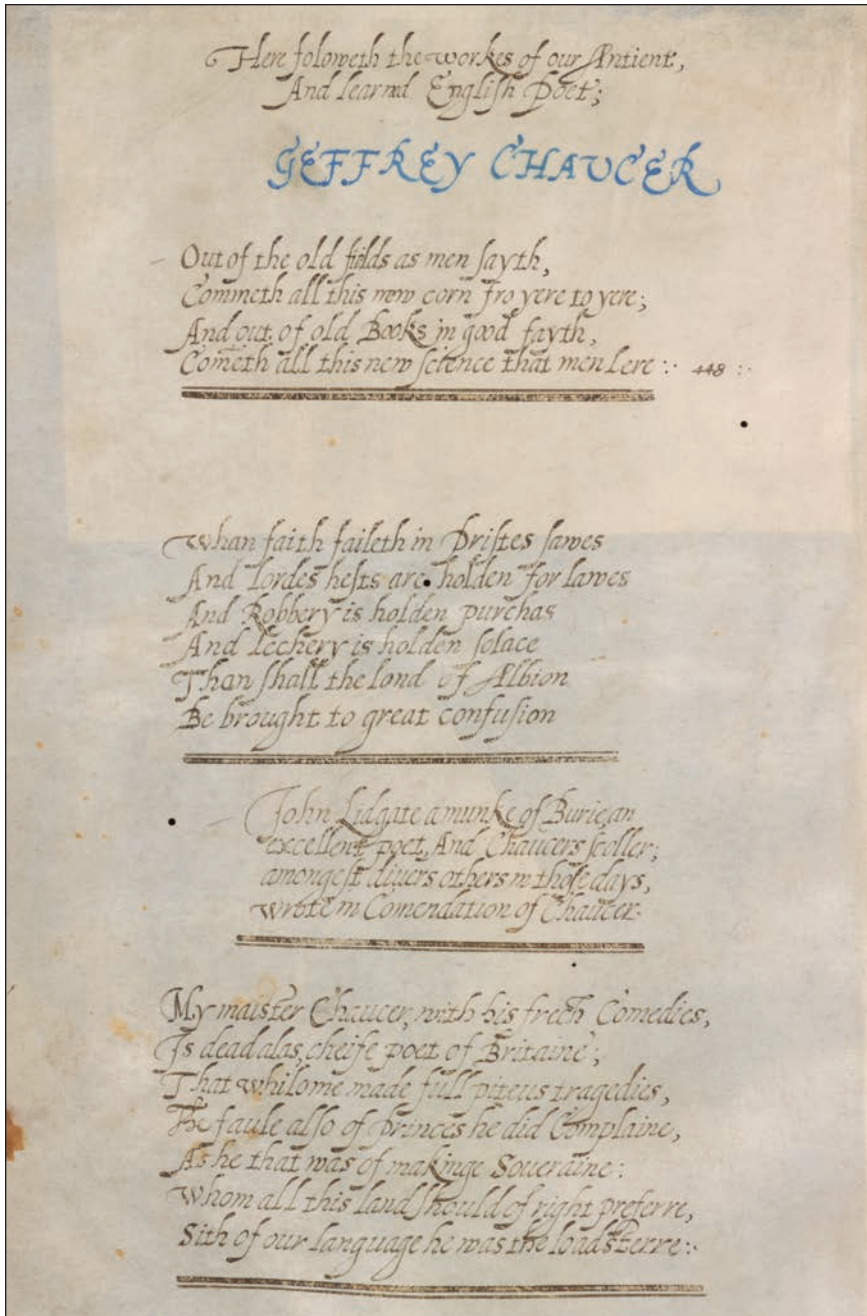 Here foloweth the workes of our Antient,
And learnd English Poet;
GEFFREY CHAUCER
Out of the old fields as men sayth,
Commeth all this new corn fro yere to yere;
And out of old Books in good fayth,
Cometh all this new science that men Lere :· 448 :·
Whan faith faileth in Pristes sawes
And Lordes hests are holden for lawes
And Robbery is holden purchas
And Lechery is holden solace
Than shall the lond of Albion
Be brought to great confusion
John Lidgate a munke of Burie, an
excellent poet, And Chaucers scoller;
amongest divers others in those days,
wrote in Comendation of Chaucer.
My maister Chaucer, with his frech Comedies,
Is dead alas, cheife poet of Britaine;
That whilome made full piteus tragedies,
The faule also of Princes he did Complaine,
As he that was of makinge Soueraine:
Whom all this land should of right preferre,
Sith of our language he was the loadsterre :·